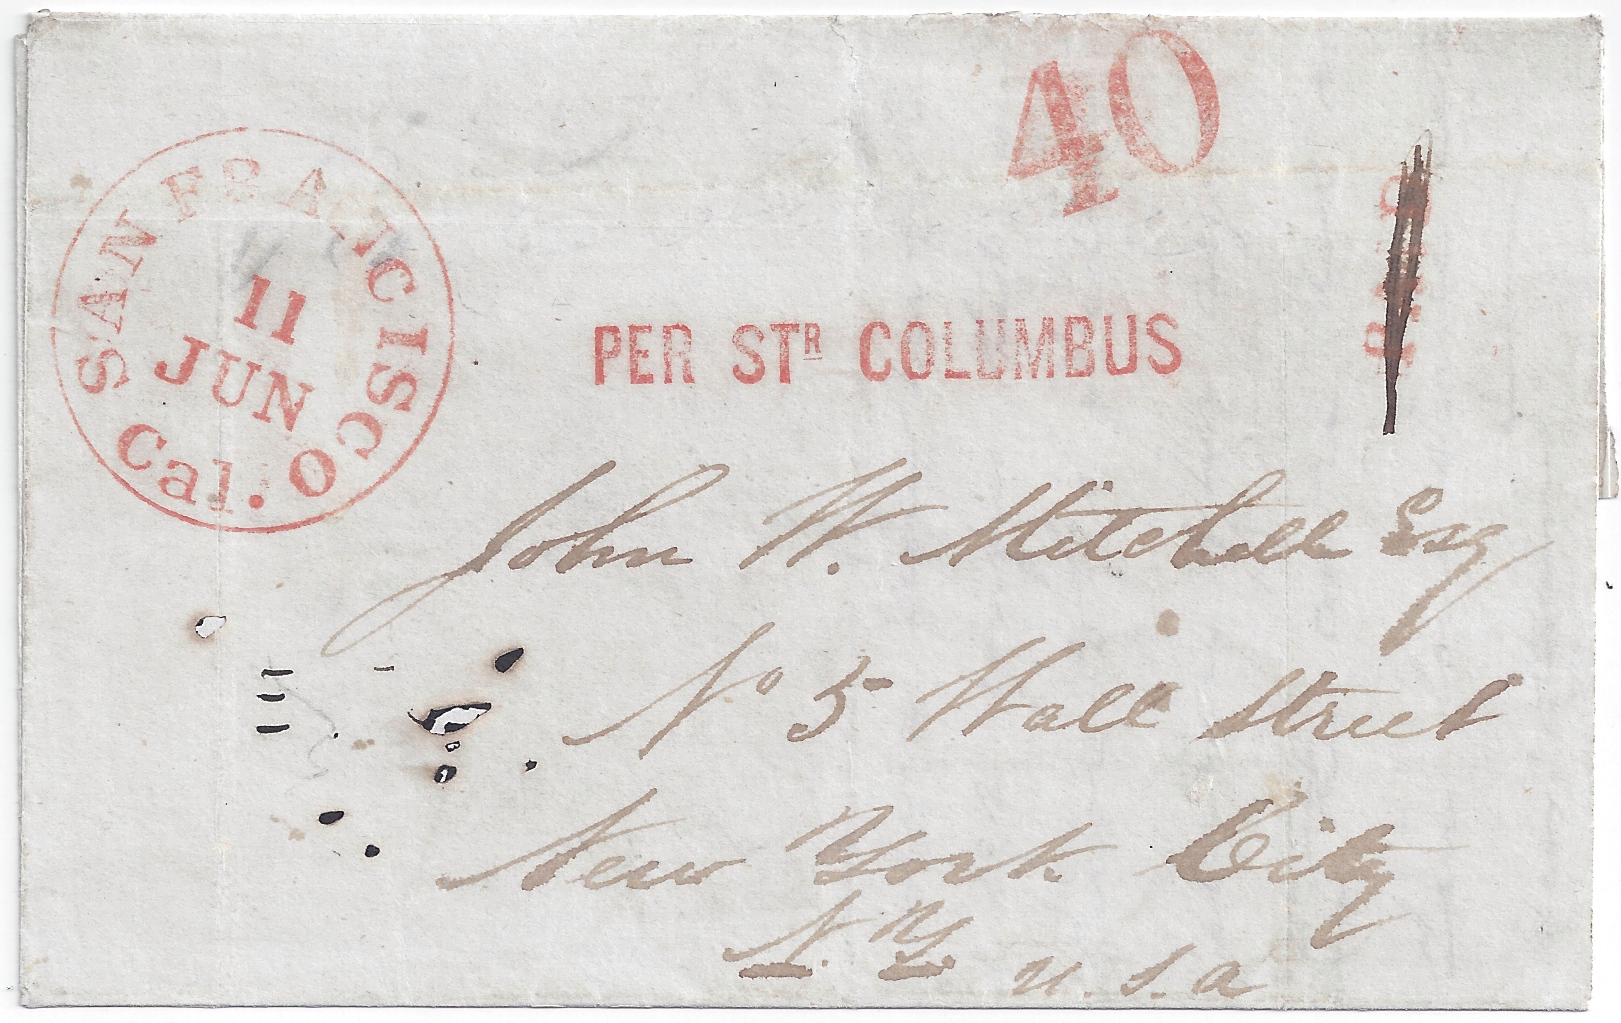 40
SAN FRANCISCO
11
JUN
Cal.
PER STR COLUMBUS
John W. Mitchell Esq
No 5 Wall Street
New York City
N.Y.
U.S.A